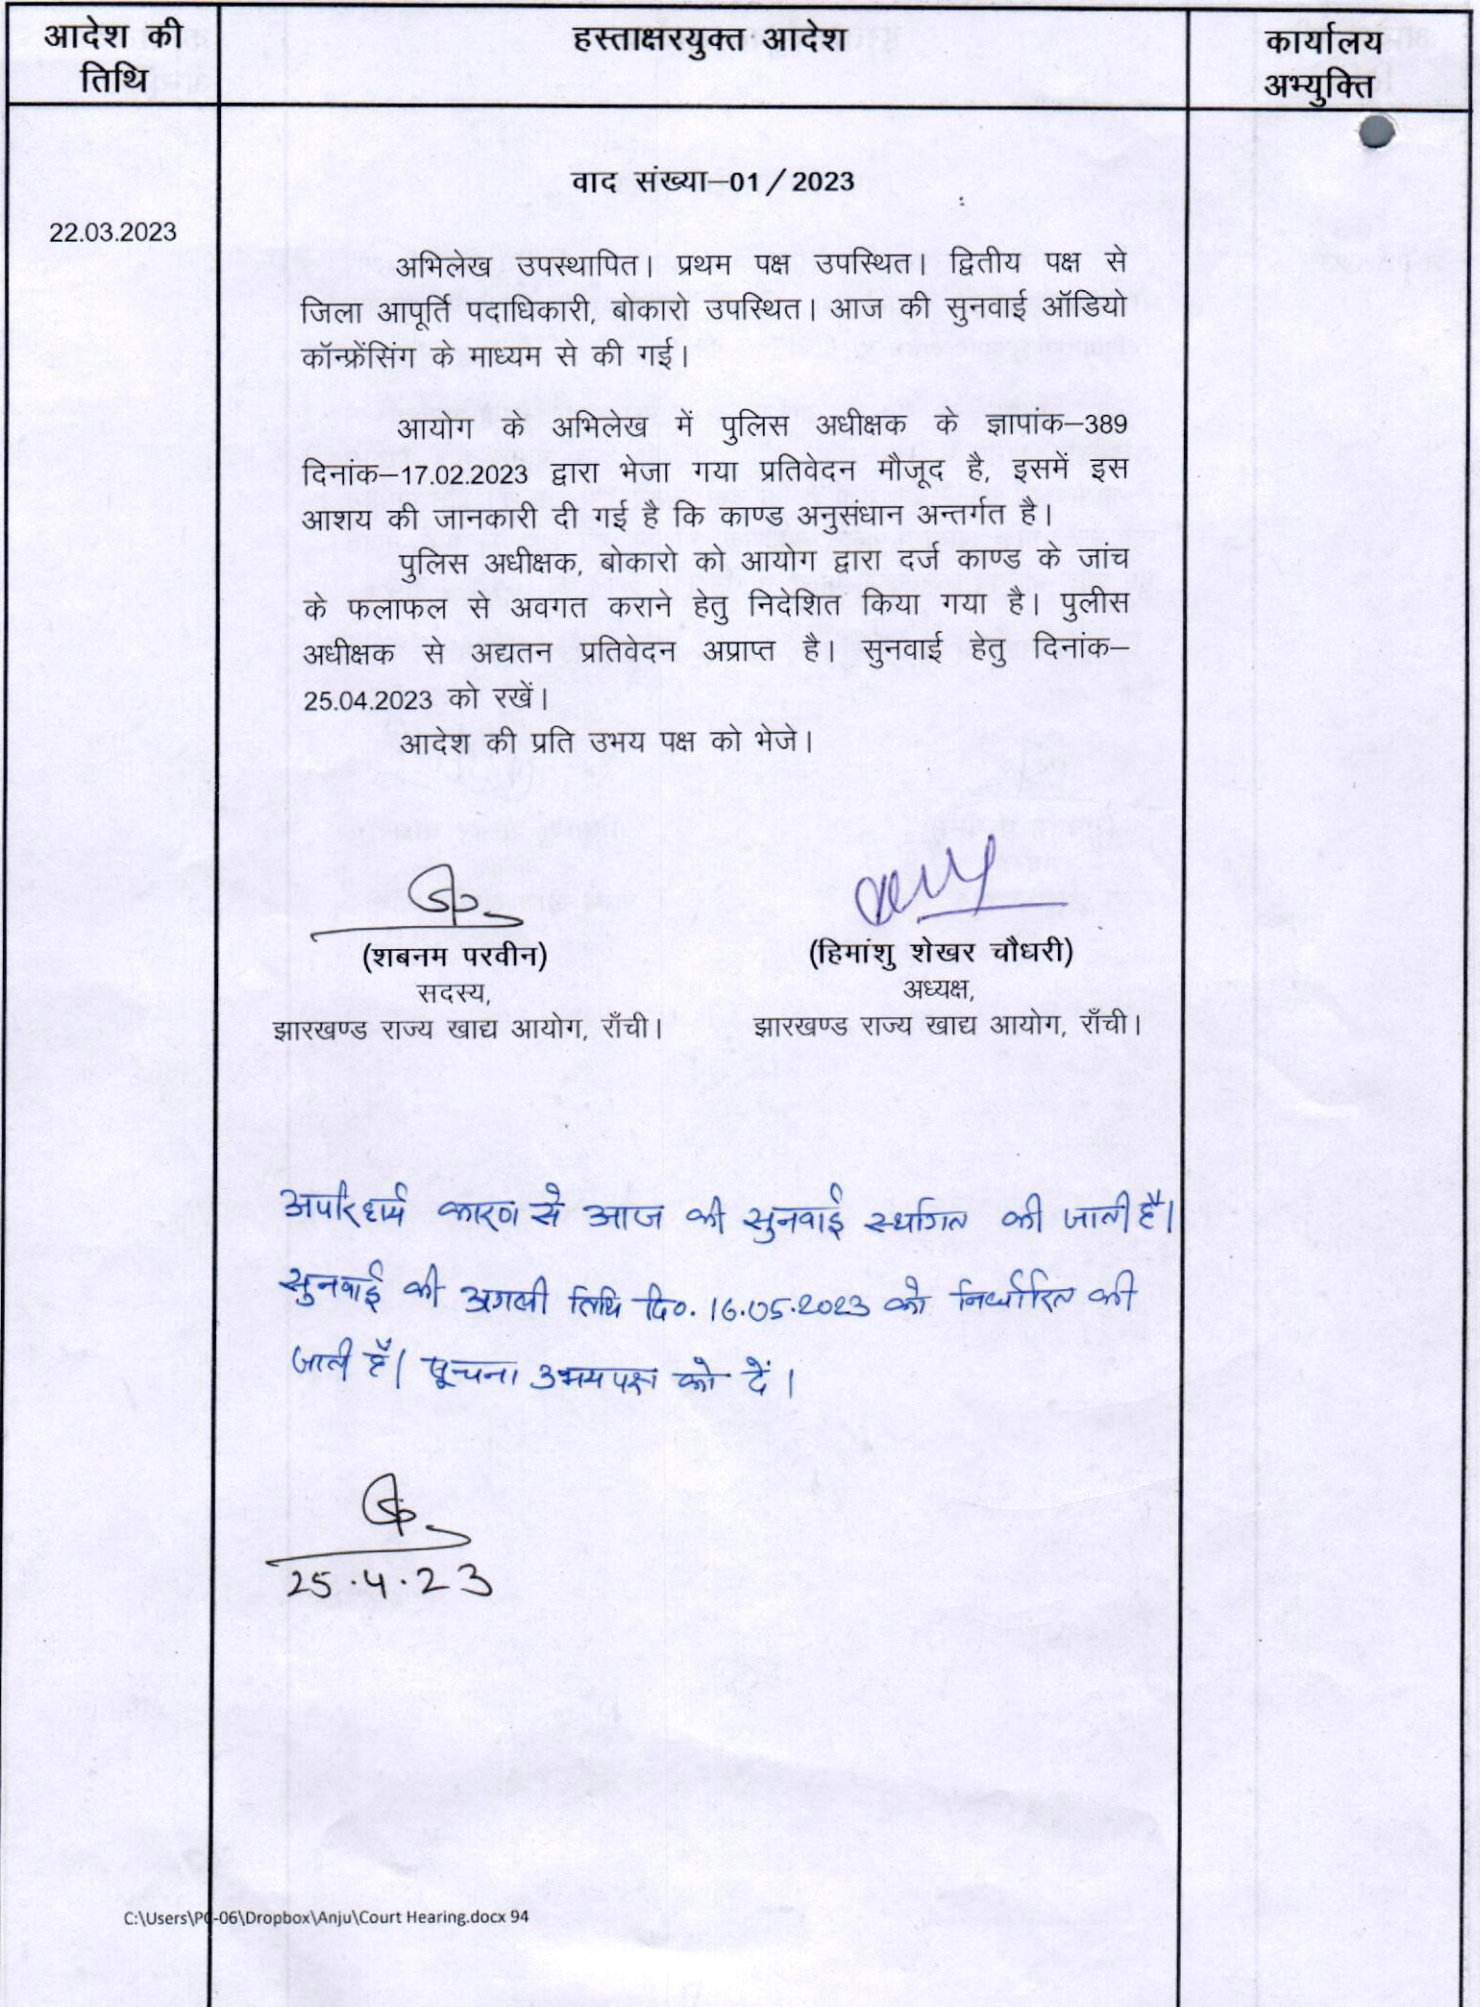 आदेश की
तिथि
हस्ताक्षरयुक्त आदेश
कार्यालय
अभ्युक्ति
वाद संख्या–01/2023
22.03.2023
अभिलेख उपस्थापित। प्रथम पक्ष उपस्थित। द्वितीय पक्ष से
जिला आपूर्ति पदाधिकारी, बोकारो उपस्थित। आज की सुनवाई ऑडियो
कॉन्फ्रेंसिंग के माध्यम से की गई।
आयोग के अभिलेख में पुलिस अधीक्षक के ज्ञापांक–389
दिनांक–17.02.2023 द्वारा भेजा गया प्रतिवेदन मौजूद है, इसमें इस
आशय की जानकारी दी गई है कि काण्ड अनुसंधान अन्तर्गत है।
पुलिस अधीक्षक, बोकारो को आयोग द्वारा दर्ज काण्ड के जांच
के फलाफल से अवगत कराने हेतु निदेशित किया गया है। पुलीस
अधीक्षक से अद्यतन प्रतिवेदन अप्राप्त है। सुनवाई हेतु दिनांक–
25.04.2023 को रखें।
आदेश की प्रति उभय पक्ष को भेजे।
(शबनम परवीन)
सदस्य,
झारखण्ड राज्य खाद्य आयोग, राँची।
(हिमांशु शेखर चौधरी)
अध्यक्ष,
झारखण्ड राज्य खाद्य आयोग, राँची।
अपरिहार्य कारण से आज की सुनवाई स्थगित की जाती है।
सुनवाई की अगली तिथि दि०. 16.05.2023 को निर्धारित की
जाती है। सूचना उभयपक्ष को दें।
25.4.23
C:\Users\PC-06\Dropbox\Anju\Court Hearing.docx 94